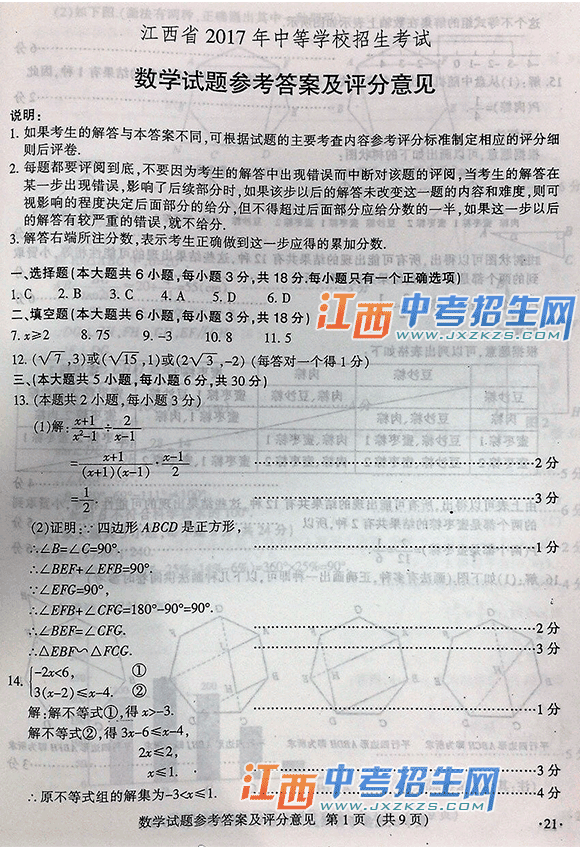 江西省2017年中等学校招生考试
数学试题参考答案及评分意见
说明:
1. 如果考生的解答与本答案不同,可根据试题的主要考查内容参考评分标准制定相应的评分细
则后评卷.
2. 每题都要评阅到底,不要因为考生的解答中出现错误而中断对该题的评阅,当考生的解答在
某一步出现错误,影响了后续部分时,如果该步以后的解答未改变这一题的内容和难度,则可
视影响的程度决定后面部分的给分,但不得超过后面部分应给分数的一半,如果这一步以后
的解答有较严重的错误,就不给分.
3. 解答右端所注分数,表示考生正确做到这一步应得的累加分数.
一、选择题(本大题共6小题,每小题3分,共18分.每小题只有一个正确选项)
1. C 2. B 3. C 4. A 5. D 6. D
二、填空题(本大题共6小题,每小题3分,共18分)
7. x≥2 8. 75 9. -3 10. 8 11. 5
12. (√7,3)或(√15,1)或(2√3,-2) (每答对一个得1分)
三、(本大题共5小题,每小题6分,共30分)
13. (本题共2小题,每小题3分)
(1)解: (x+1)/(x²-1) ÷ 2/(x-1)
= (x+1)/((x+1)(x-1)) · (x-1)/2 ……2分
= 1/2. ……3分
(2)证明:∵四边形ABCD是正方形,
∴∠B=∠C=90°. ……1分
∴∠BEF+∠EFB=90°.
∵∠EFG=90°,
∴∠EFB+∠CFG=180°-90°=90°.
∴∠BEF=∠CFG. ……2分
∴△EBF∽△FCG. ……3分
14. {-2x<6, ①
3(x-2)≤x-4. ②
解:解不等式①,得x>-3. ……1分
解不等式②,得3x-6≤x-4,
2x≤2,
x≤1. ……3分
∴原不等式组的解集为-3<x≤1. ……4分
数学试题参考答案及评分意见 第1页 (共9页)
·21·
江西中考招生网
www.jxzkzs.com
江西中考招生网
www.jxzkzs.com